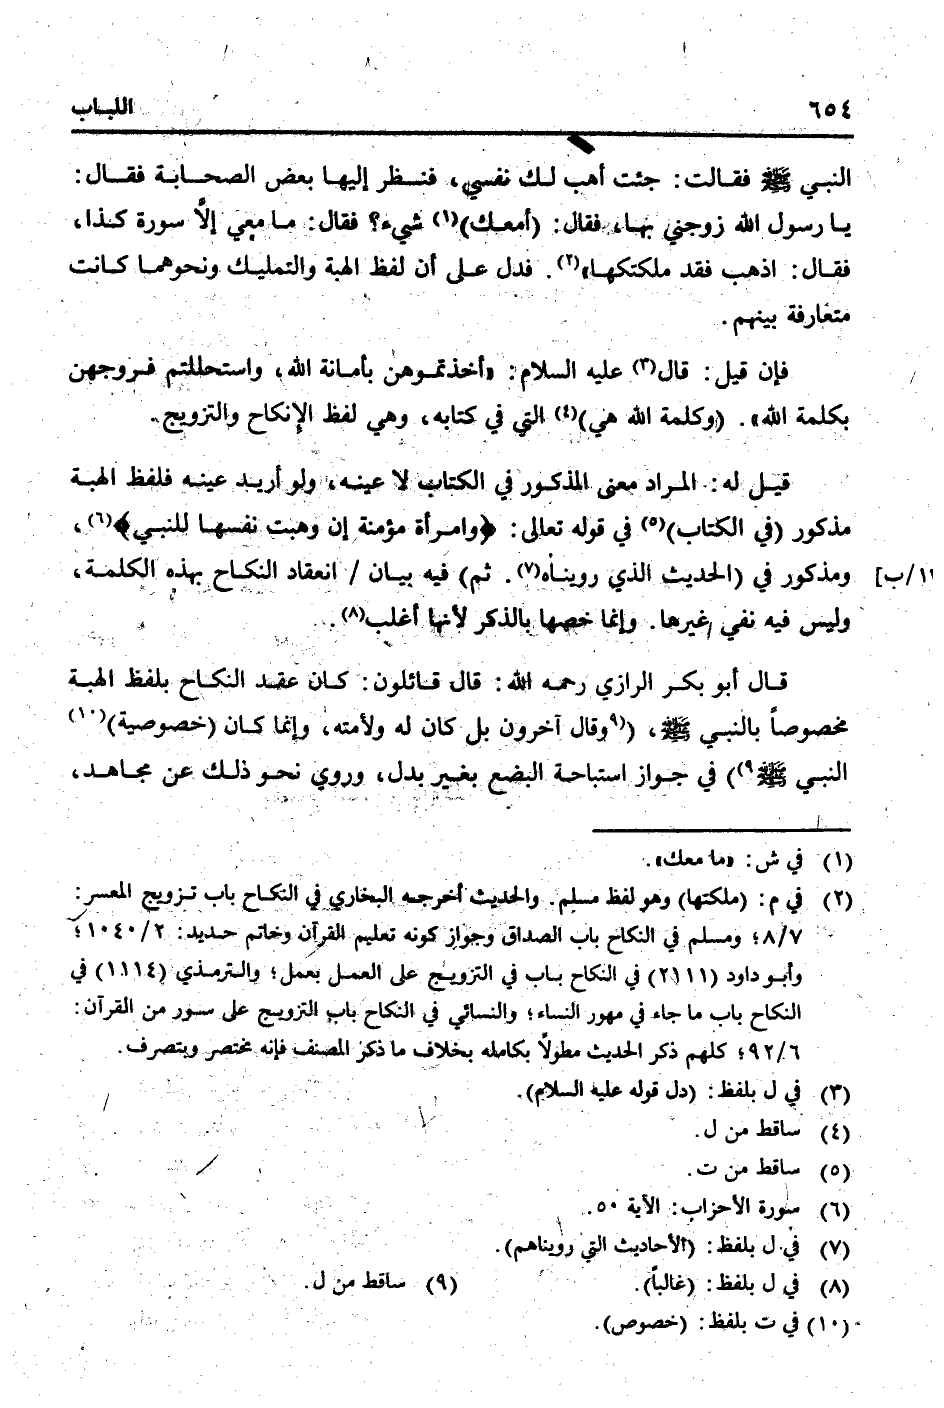 ٦٥٤ اللبـاب
النبـي ﷺ فقـالت: جئت أهب لـك نفسي، فنـظر إليهـا بعض الصحـابـة فقـال:
يـا رسول الله زوجني بهـا، فقال: (أمعـك)(١) شيء؟ فقال: مـا معي إلاَّ سورة كـذا،
فقـال: اذهب فقد ملكتكهـا»(٢). فدل عـلى أن لفظ الهبة والتمليـك ونحوهمـا كـانت
متعارفة بينهم.
فإن قيل: قال(٣) عليه السلام: «أخذتمـوهن بأمـانة الله، واستحللتم فـروجهن
بكلمة الله». (وكلمة الله هي)(٤) التي في كتابه، وهي لفظ الإنكاح والتزويج.
قيـل له: المـراد معنى المذكـور في الكتاب لا عينـه، ولو أريـد عينـه فلفظ الهبـة
مذكور (في الكتاب)(٥) في قوله تعالى: ﴿وامـرأة مؤمنة إن وهبت نفسهـا للنبـي﴾(٦)،
ومذكور في (الحديث الذي رويناه(٧). ثم) فيه بيـان / انعقاد النكـاح بهذه الكلمـة، ١٢/ب]
وليس فيه نفي غيرها. وإنما خصها بالذكر لأنها أغلب(٨).
قـال أبو بكـر الرازي رحمـه الله: قال قـائلون: كـان عقـد النكـاح بلفظ الهبـة
مخصوصاً بالنبـي ﷺ، (٩وقال آخرون بل كان له ولأمته، وإنما كـان (خصوصية)(١٠)
النبـي ﷺ٩)) في جـواز استباحـة البضـع بغيـر بدل، وروي نحـو ذلـك عن مجـاهـد،
(١) في ش: «ما معك».
(٢) في م: (ملكتها) وهو لفظ مسلم. والحديث أخرجـه البخاري في النكـاح باب تـزويج المعسر:
٨/٧؛ ومسلم في النكاح باب الصداق وجواز كونه تعليم القرآن وخاتم حـديد: ١٠٤٠/٢؛
وأبـو داود (٢١١١) في النكاح بـاب في التزويـج على العمـل بعمل؛ والتـرمـذي (١١١٤) في
النكاح باب ما جاء في مهور النساء؛ والنسائي في النكاح باب التزويـج على سـور من القرآن:
٩٢/٦؛ كلهم ذكر الحديث مطولاً بكامله بخلاف ما ذكر المصنف فإنه مختصر وبتصرف.
(٣) في ل بلفظ: (دل قوله عليه السلام).
(٤) ساقط من ل.
(٥) ساقط من ت.
(٦) سورة الأحزاب: الآية ٥٠.
(٧) في ل بلفظ: (الأحاديث التي رويناهم).
(٨) في ل بلفظ: (غالباً). (٩) ساقط من ل.
(١٠) في ت بلفظ: (خصوص).